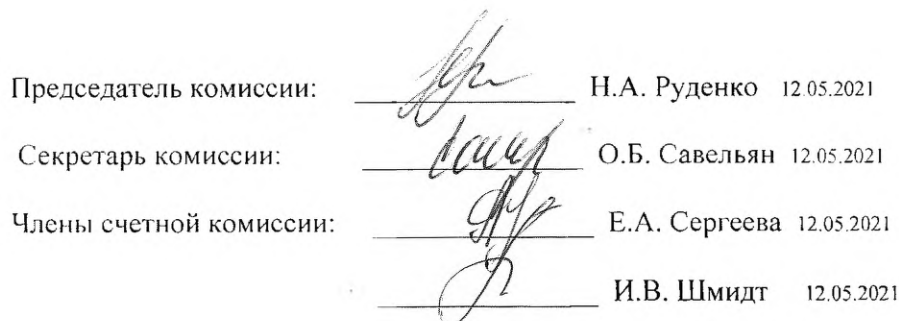 Председатель комиссии: Н.А. Руденко 12.05.2021
Секретарь комиссии: О.Б. Савельян 12.05.2021
Члены счетной комиссии: Е.А. Сергеева 12.05.2021
И.В. Шмидт 12.05.2021